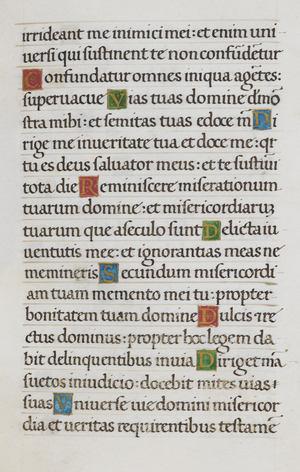 irrideant me inimici mei: et enim uni
versi qui sustinent te non confūdētur
Confundatur omnes iniqua agētes:
supervacue Vias tuas domine dēmō
stra mihi: et semitas tuas edoce me D
rige me in veritate tua et doce me: qr
tu es deus salvator meus: et te sustinui
tota die Reminiscere miserationum
tuarum domine: et misericordiarum
tuarum que a seculo sunt Delicta iu
ventutis mee: et ignorantias meas ne
memineris Secundum misericordi
am tuam memento mei tu: propter
bonitatem tuam domine Dulcis et re
ctus dominus: propter hoc legem da
bit delinquentibus in via Diriget mā
suetos in iudicio: docebit mites vias
suas Universe vie domini misericor
dia et veritas requirentibus testamē